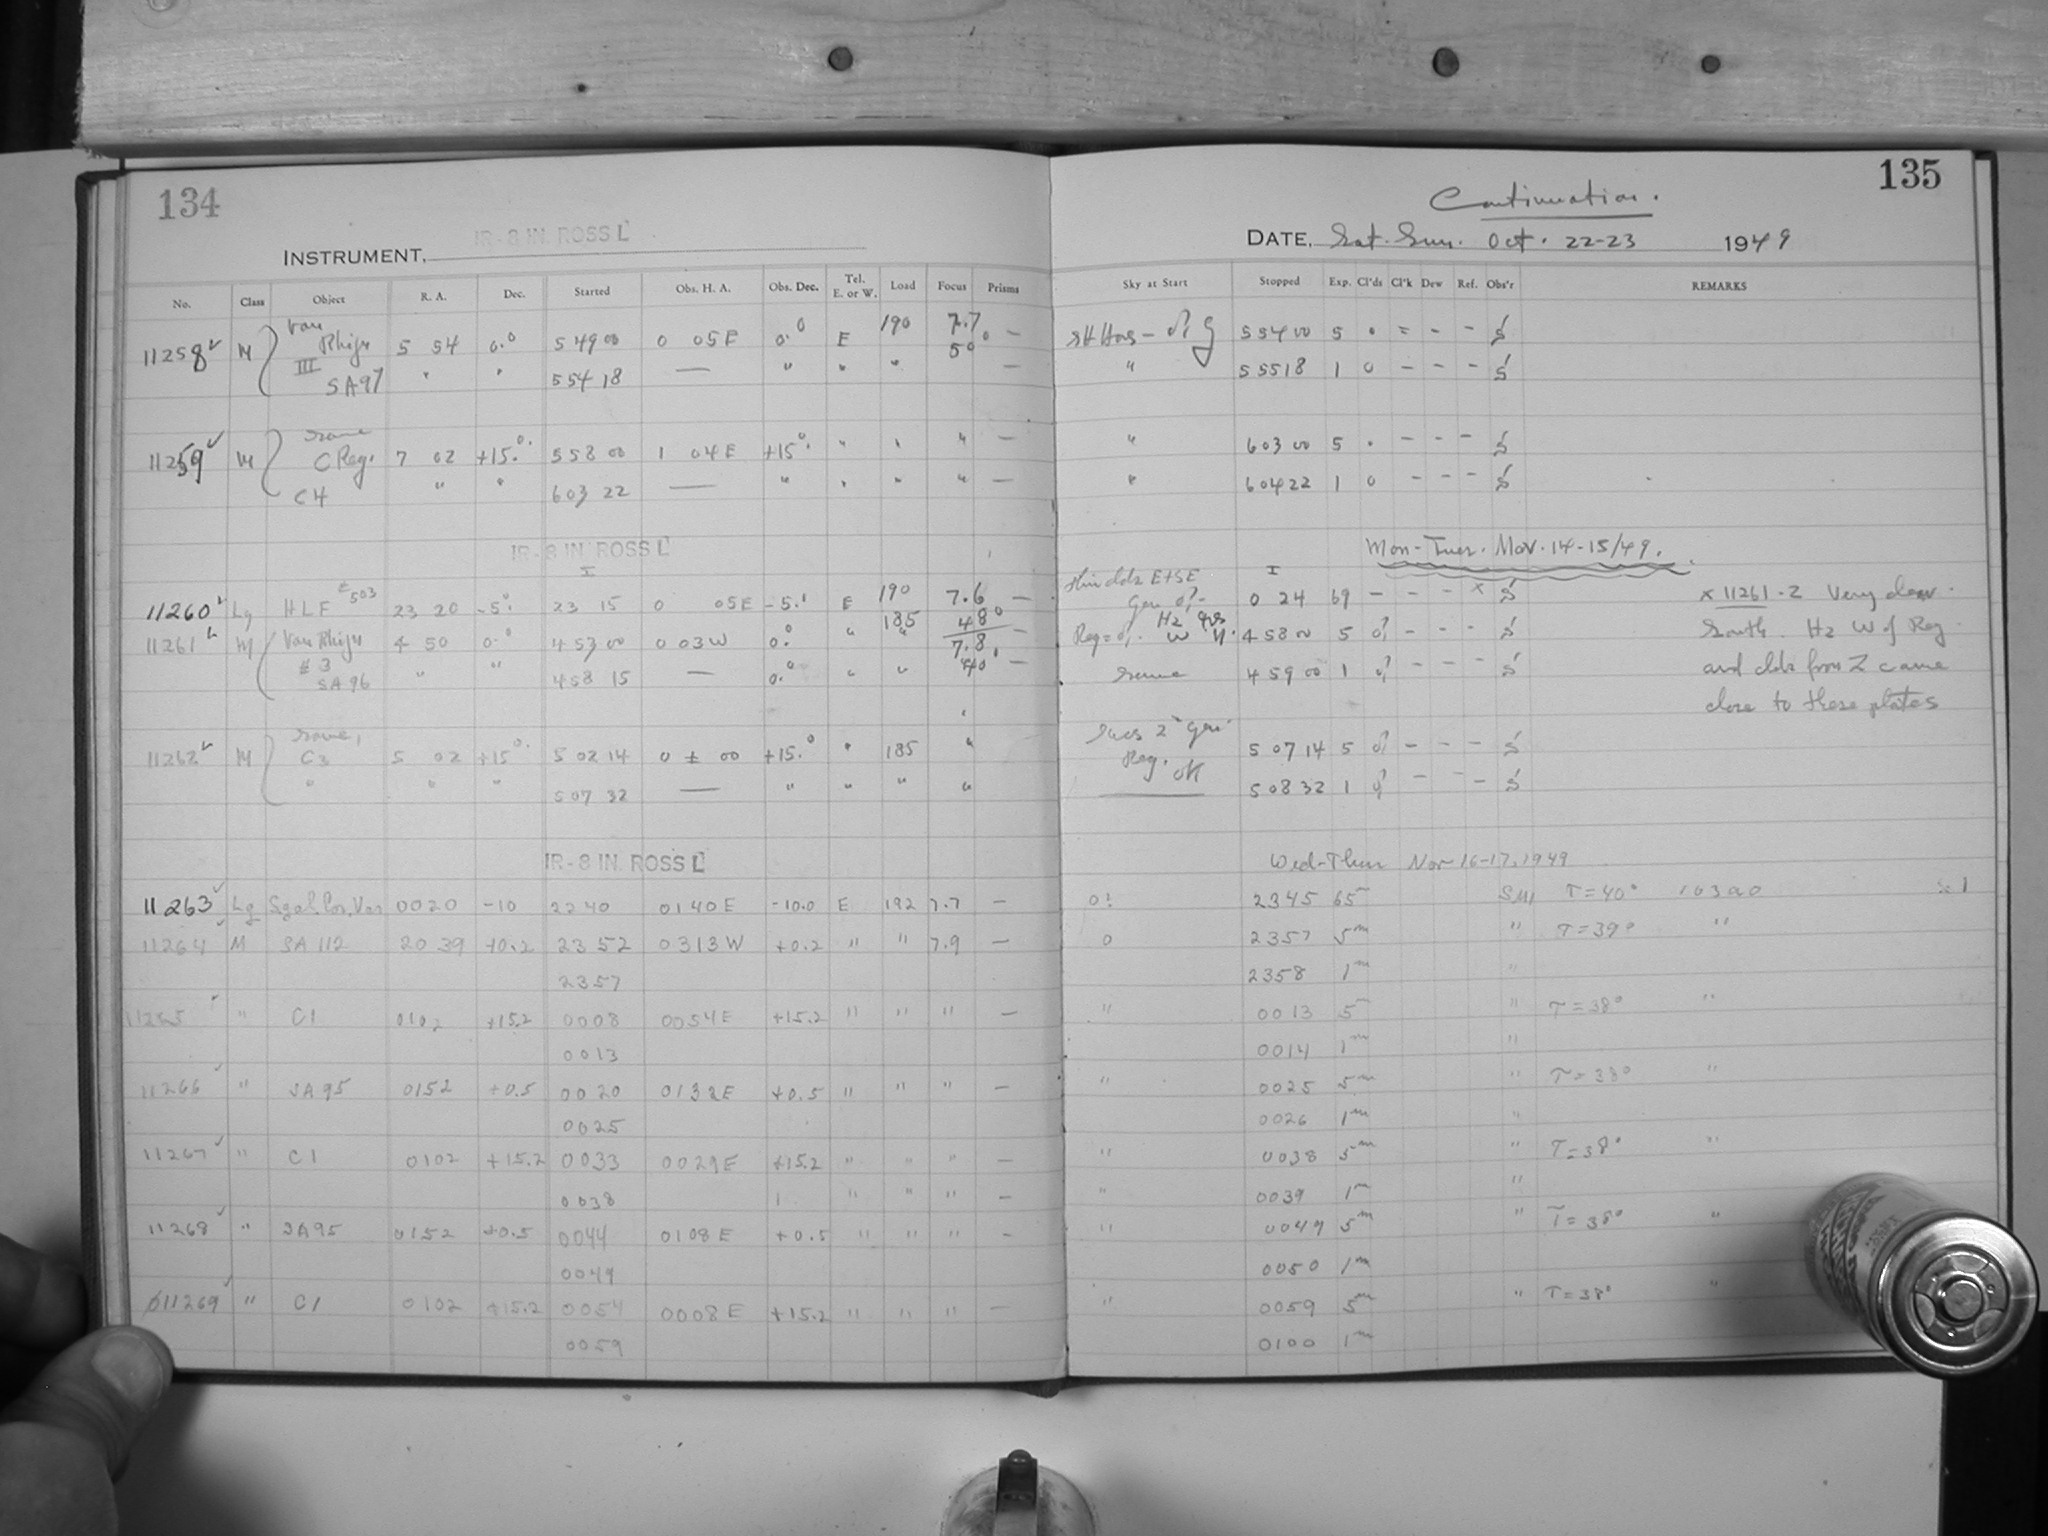 134
IR-8 IN. ROSS L
INSTRUMENT,
No. Class Object R. A. Dec. Started Obs. H. A. Obs. Dec. Tel. E. or W. Load Focus Prisms
11258 M Van Rhijn III 5 54 0.° 5 49 00 0 05 E 0.° E 190 7.7 50° —
SA97 " " 5 54 18 — " " " —
11259 M same C Reg. 7 02 +15.° 5 58 00 1 04 E +15.° " " " —
C4 " " 6 03 22 — " " " " —
IR-8 IN. ROSS L
11260 Lg HLF #503 23 20 -5.° I 23 15 0 05 E -5.° E 190 7.6 48° —
11261 M Van Rhijn #3 4 50 0.° 4 53 00 0 03 W 0.° " 185 " 7.8 40° —
SA 96 " " 4 58 15 — 0.° " " —
11262 M same, C3 5 02 +15.° 5 02 14 0 ± 00 +15.° " 185 "
" " " 5 07 32 — " " " "
IR-8 IN. ROSS L
11263 Lg Sgal. Var 0020 -10 2240 0140 E -10.0 E 192 7.7 —
11264 M SA 112 20 39 +0.2 23 52 0313 W +0.2 " " 7.9 —
2357
11265 " C1 0102 +15.2 0008 0054 E +15.2 " " " —
0013
11266 " SA 95 0152 +0.5 0020 0132 E +0.5 " " " —
0025
11267 " C1 0102 +15.2 0033 0029 E +15.2 " " " —
0038 " " " —
11268 " SA 95 0152 +0.5 0044 0108 E +0.5 " " " —
0049
11269 " C1 0102 +15.2 0054 0008 E +15.2 " " " —
0059
135
Continuation.
DATE, Sat. Sun. Oct. 22-23 1949
Sky at Start Stopped Exp. Cl'ds Cl'k Dew Ref. Obs'r REMARKS
5 54 00 5 S
" 5 55 18 1 0 - - - S
" 6 03 00 5 - - - S
" 6 04 22 1 0 - - - S
Mon-Tues. Nov. 14-15/49.
Thin clds E+SE
Gen I 0 24 69 - - - x S x 11261-2 Very clear
Reg = Hz W 4 58 00 5 - - - S South. Hz W of Reg
same 4 59 00 1 - - - S and clds from Z came
close to these plates
Reg. OK 5 07 14 5 - - - S
5 08 32 1 - - - S
Wed-Thur Nov 16-17, 1949
0! 2345 65 SMI T=40° 103aO
0 2357 5m " T=39° "
2358 1m "
" 0013 5 " T=38° "
0014 1m "
" 0025 5m " T=33° "
0026 1m "
" 0038 5m " T=38° "
" 0039 1m "
" 0049 5m " T=38° "
0050 1m
" 0059 5m " T=38° "
0100 1m